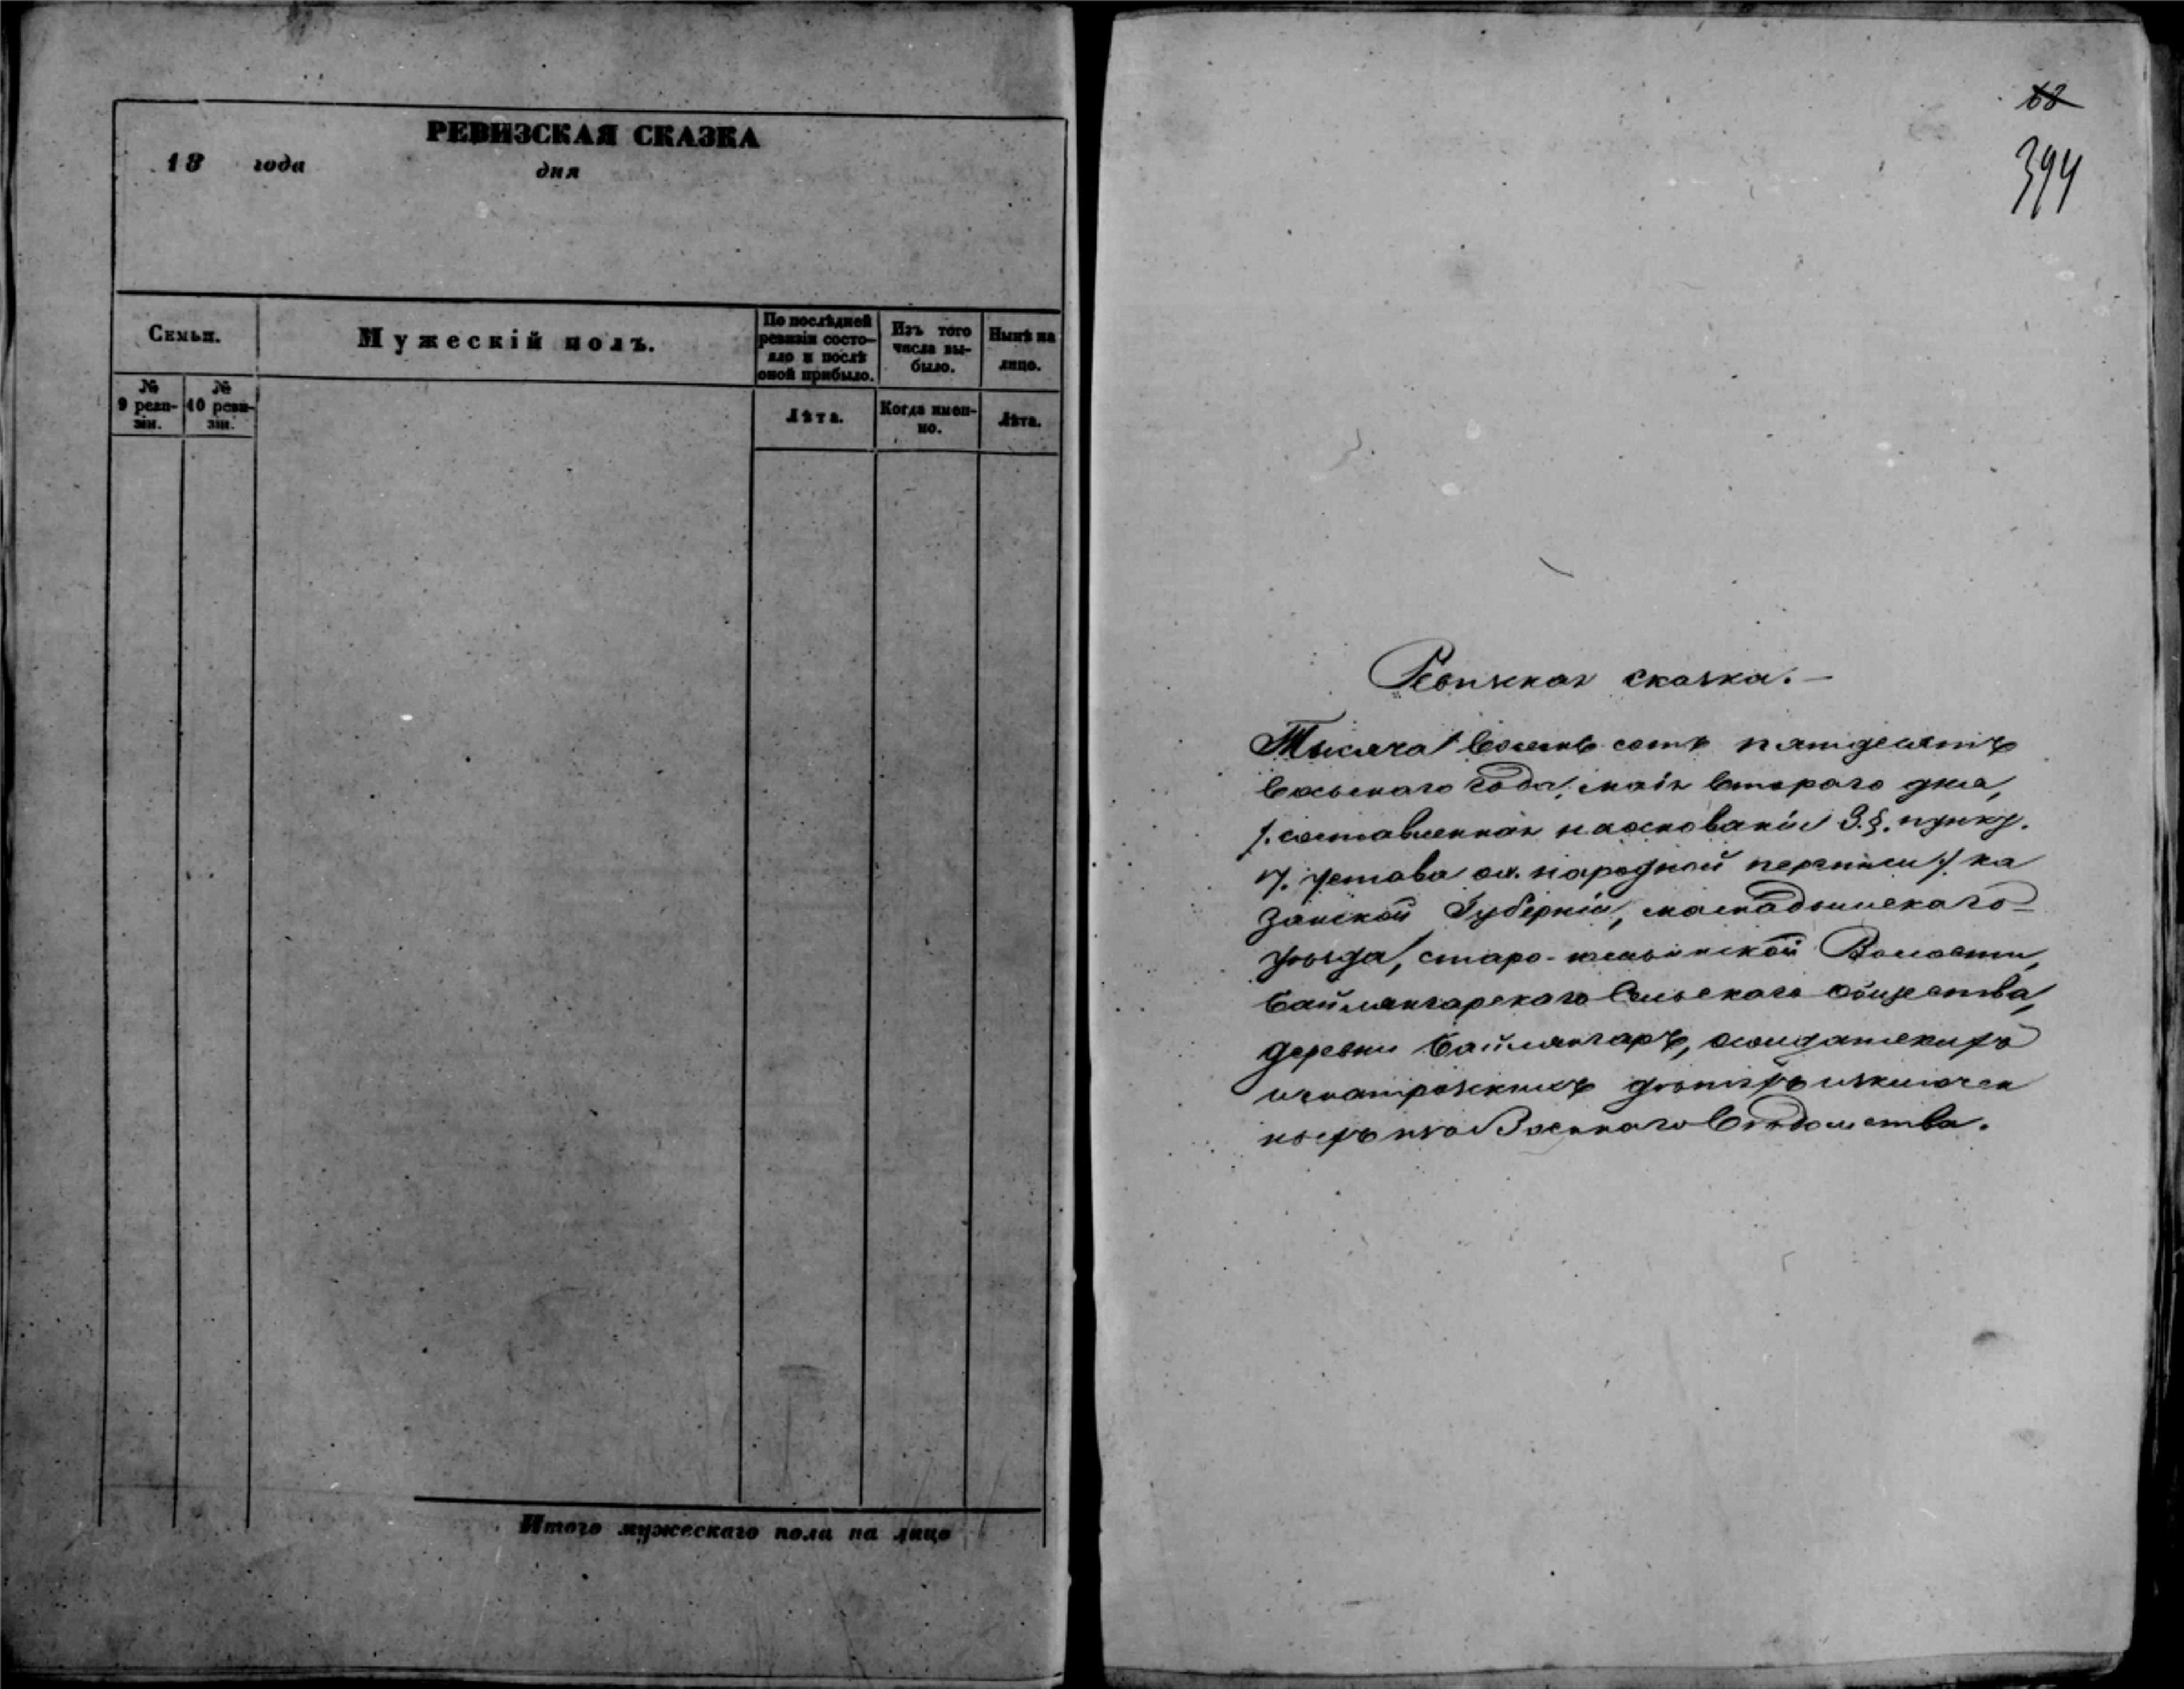 РЕВИЗСКАЯ СКАЗКА
18 года дня
Семьи.
Мужескій полъ.
По послѣдней
ревизіи состо-
яло и послѣ
оной прибыло.
Изъ того
числа вы-
было.
Нынѣ на
лицо.
№
9 реви-
зіи.
№
10 реви-
зіи.
Лѣта.
Когда имен-
но.
Лѣта.
Итого мужескаго пола на лицо
68
394
Ревизская сказка.—
Тысяча восемь сотъ пятидесятъ
восьмаго года, маія втораго дня,
/:составленная на основаніи 3.§. пунк.
17. устава о народной переписи:/ ка
занской Губерніи, мамадышскаго
уѣзда, старо-юмьинской Волости,
Баймянгарскаго Сельскаго общества,
деревни Баймянгаръ, о солдатскихъ
и кантонскихъ дѣтяхъ изключен
ныхъ изъ Военнаго Вѣдомства.